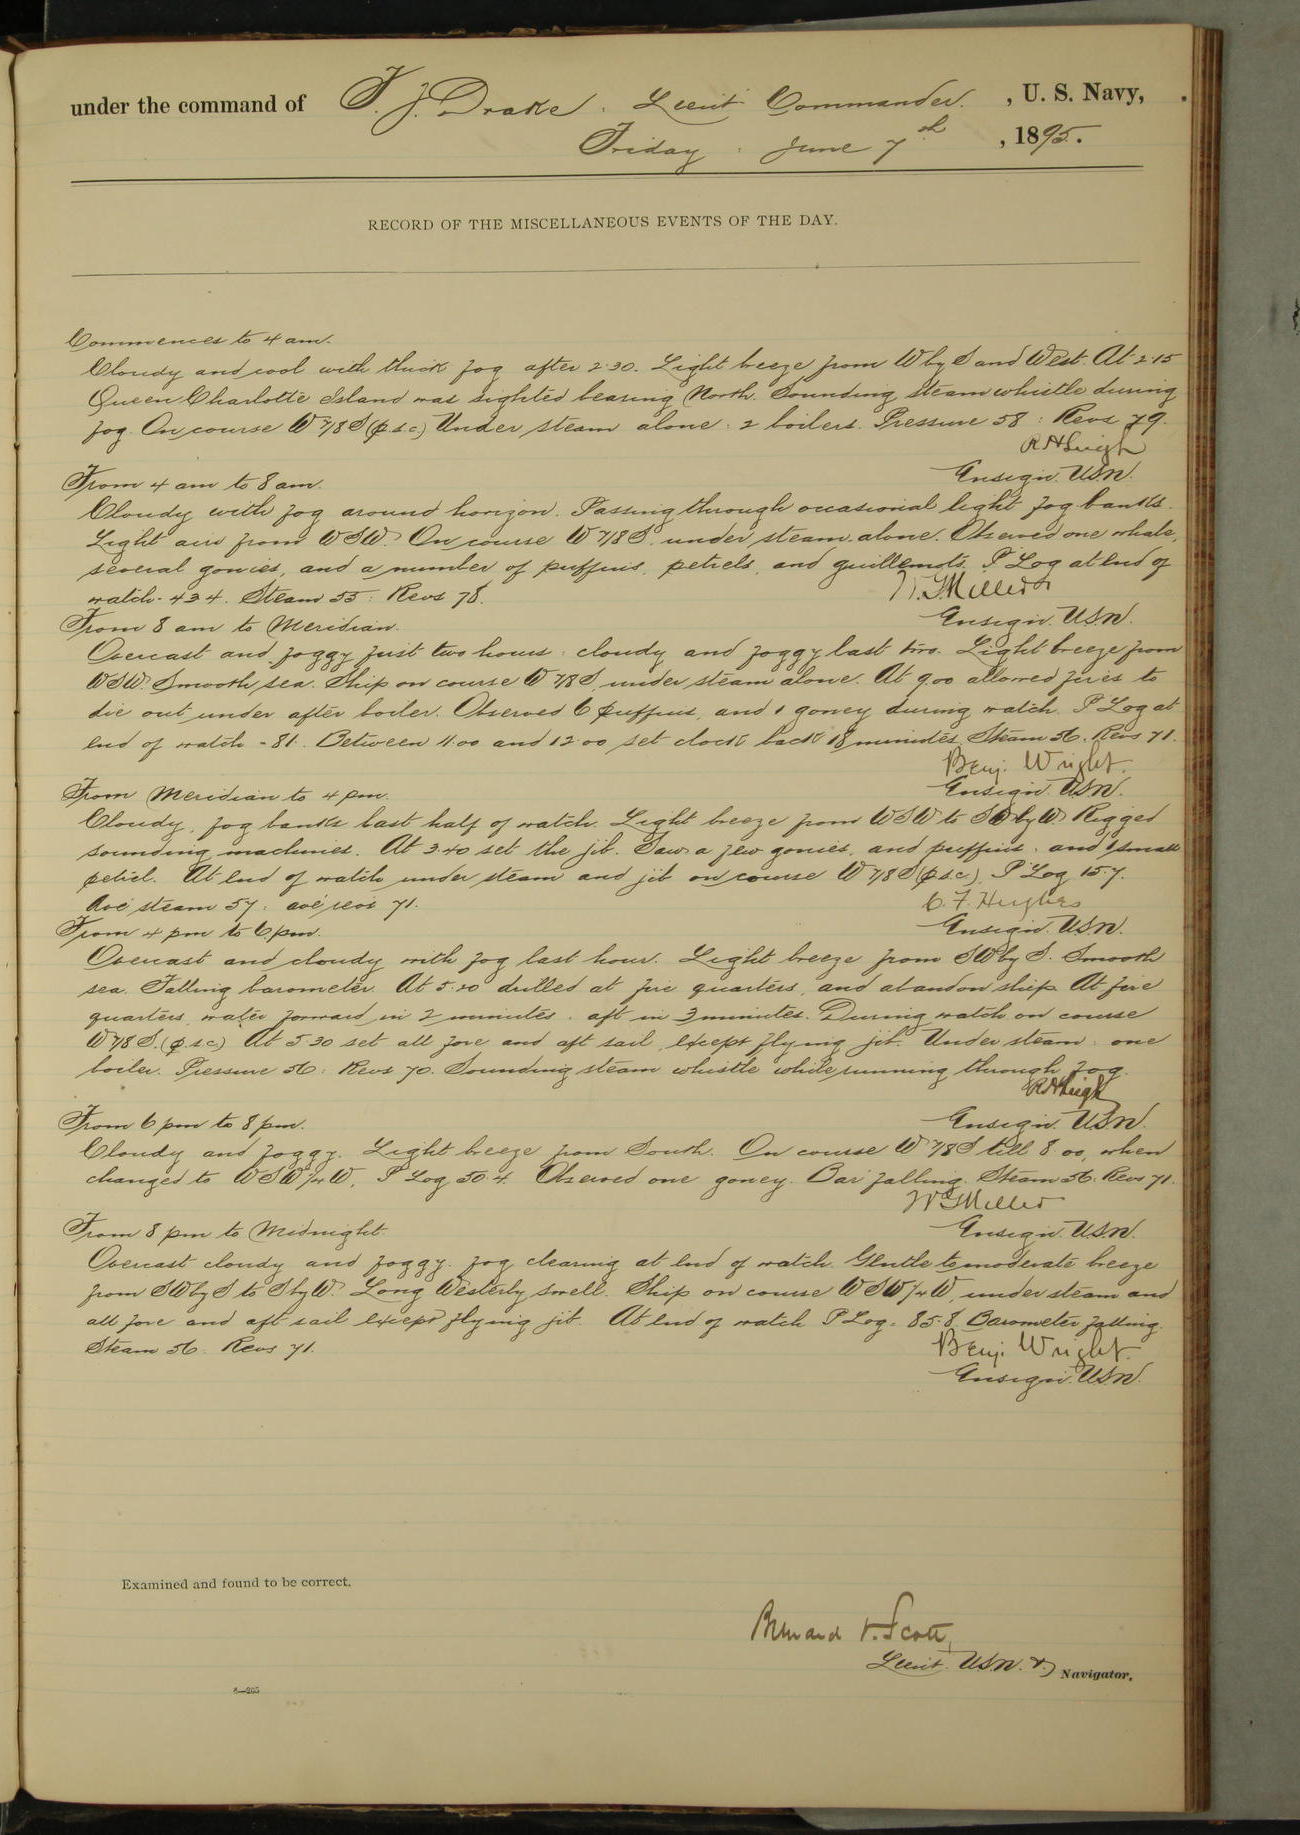 under the command of F. J. Drake, Lieut Commander. , U. S. Navy,
Friday, June 7th , 1895.
RECORD OF THE MISCELLANEOUS EVENTS OF THE DAY.
Commences to 4 am.
Cloudy and cool with thick fog after 2.30. Light breeze from W by S and West. At 2.15
Queen Charlotte Island was sighted bearing North. Sounding steam whistle during
fog. On course W 7/8 S (p.s.c.) Under steam alone: 2 boilers. Pressure 58: Revs 79.
R H Leigh
From 4 am to 8 am. Ensign. U.S.N.
Cloudy with fog around horizon. Passing through occasional light fog banks.
Light airs from WSW. On course W 7/8 S. under steam alone. Observed one whale,
several gonies, and a number of puffins, petrels, and guillemots. P Log at end of
watch - 43.4. Steam 55: Revs 78. W. G. Miller
From 8 am to Meridian. Ensign. U.S.N.
Overcast and foggy first two hours: cloudy and foggy last two. Light breeze from
WSW. Smooth sea. Ship on course W 7/8 S, under steam alone. At 9.00 allowed fires to
die out under after boiler. Observed 6 puffins, and 1 goney during watch. P Log at
end of watch - 81. Between 11.00 and 12.00 set clock back 18 minutes. Steam 56. Revs 71.
Benj. Wright.
From Meridian to 4 pm. Ensign. U.S.N.
Cloudy, fog banks last half of watch. Light breeze from WSW to SW by W. Rigged
sounding machines. At 3.40 set the jib. Saw a few gonies, and puffins, and 1 small
petrel. At end of watch under steam and jib on course W 7/8 S (p.s.c.), P Log 15.7.
Ave steam 57: ave revs 71. C. F. Hughes
From 4 pm to 6 pm. Ensign. U.S.N.
Overcast and cloudy with fog last hour. Light breeze from SW by S. Smooth
sea. Falling barometer. At 5.10 drilled at fire quarters, and abandon ship. At fire
quarters, water forward in 2 minutes, aft in 3 minutes. During watch on course
W 7/8 S. (p.s.c.) At 5.30 set all fore and aft sail, except flying jib. Under steam: one
boiler. Pressure 56: Revs 70. Sounding steam whistle while running through fog.
R H Leigh
From 6 pm to 8 pm. Ensign. U.S.N.
Cloudy and foggy. Light breeze from South. On course W 7/8 S till 8.00, when
changed to WSW 1/4 W, P Log 50.4. Observed one goney. Bar falling. Steam 56. Revs 71.
W G Miller
From 8 pm to Midnight. Ensign. U.S.N.
Overcast cloudy and foggy. fog clearing at end of watch. Gentle to moderate breeze
from SW by S to S by W. Long Westerly swell. Ship on course WSW 1/4 W, under steam and
all fore and aft sail except flying jib. At end of watch P Log = 85.8. Barometer falling.
Steam 56. Revs 71. Benj. Wright.
Ensign. U.S.N.
Examined and found to be correct.
Bernard O. Scott,
Lieut. USN. & Navigator.
8—205